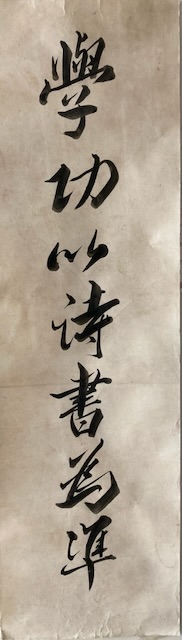 學功以詩書為準